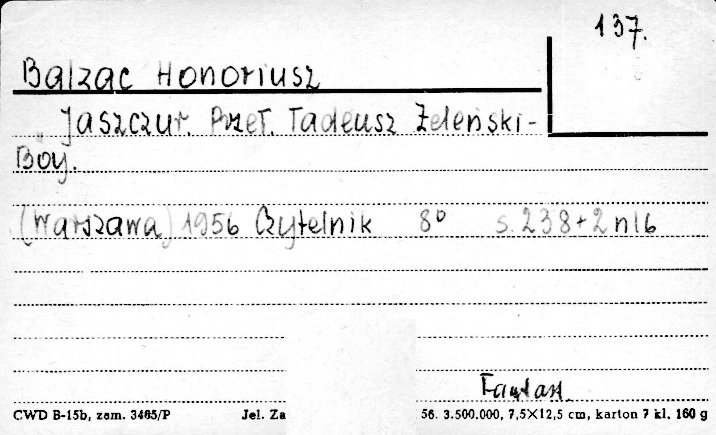 137.
Balzac Honoriusz
Jaszczur. Przeł. Tadeusz Żeleński-
Boy.
(Warszawa) 1956 Czytelnik 8° s. 238+2 nlb
Fantast.
CWD B-15b, zam. 3465/P Jel. Za 56. 3.500.000, 7,5×12,5 cm, karton 7 kl. 160 g